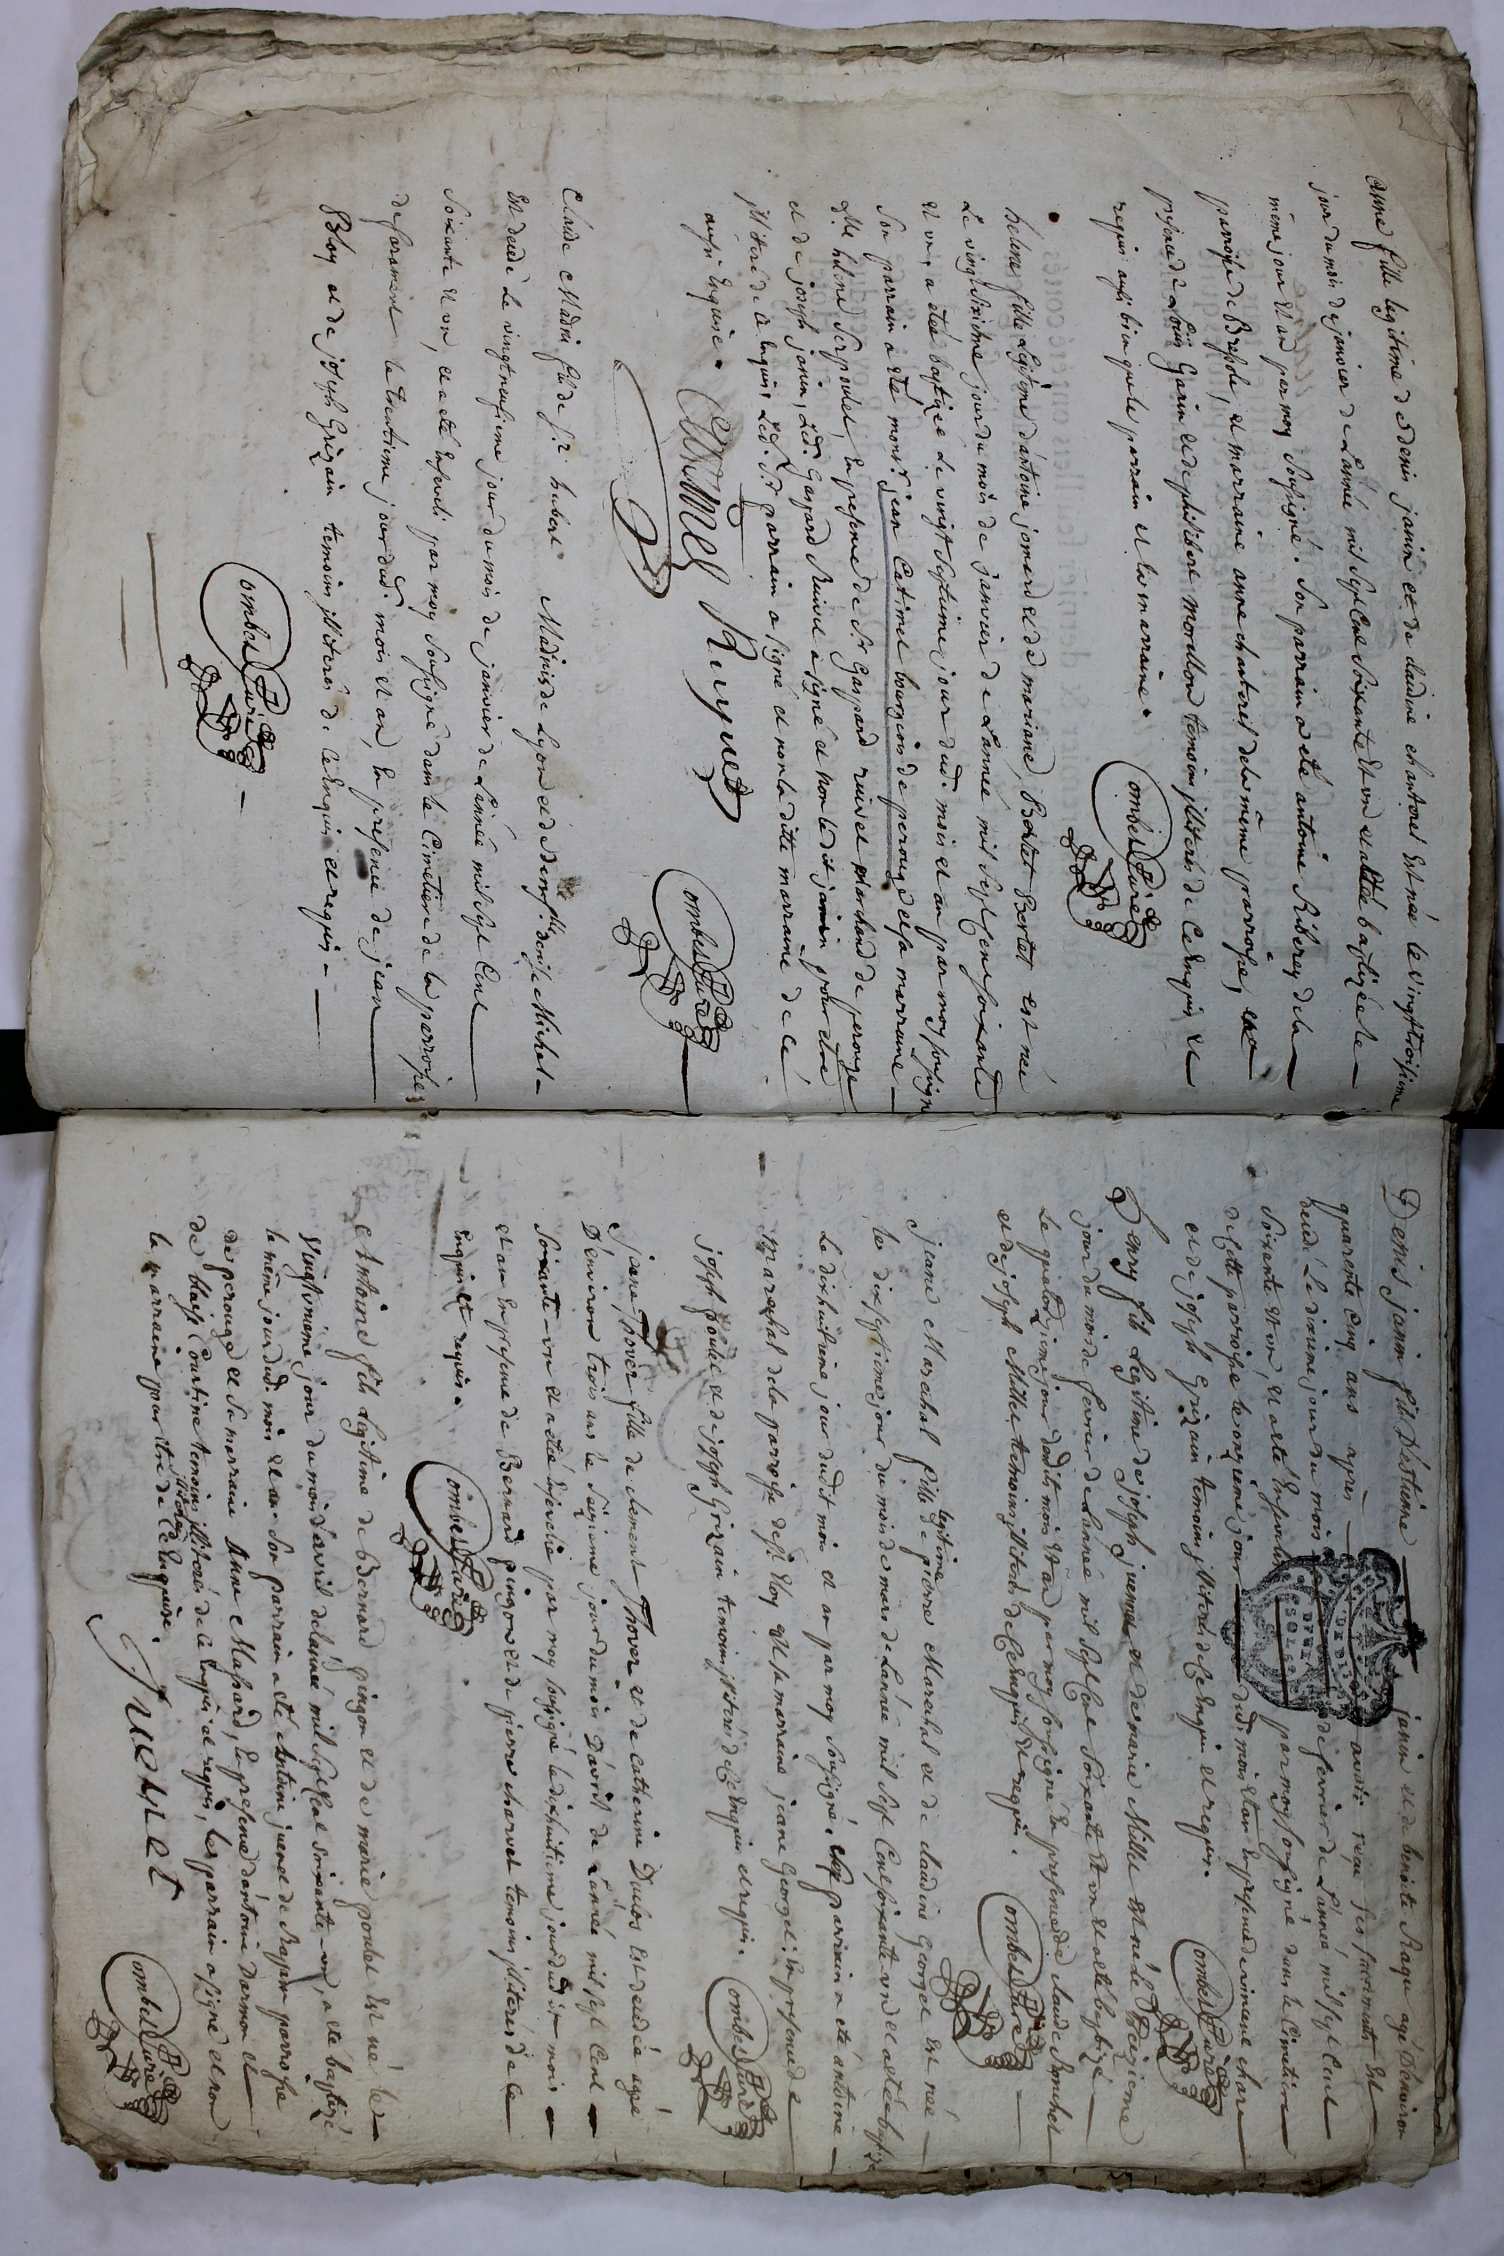 anne fille legitime de denis janin et de claudine chantorel Est née le vingttroisieme
jour du mois de janvier de L'année mil Sept Cent Soixante Et un et a etée baptizée le
même jour Et an par moy Soussigné. Son parrain a eté antoine Riberey de la
parroisse de Bressole, et marraine anne chantorel de la même parroisse, en
presence de Loüis Garin et de philibert morellon temoins jlliterés de Ce Enquis et
requis aussi bien que le parrain et la marraine.
Combet Curé
helene fille Legitime d'antoine jomard et de mariane Bertet est née
Le vingtsixieme jour du mois de janvier de L'année mil Sept Cent soixante
et un, a etée baptizée Le vingt Septieme jour dud. mois et an par moy soussigné
Son parrain a eté mons.r jean Catimel bourgeois de perouge et sa marraine
d.lle helene Serpoulet, En presence de S.r Gaspard ruivet marchand de perouge
et de joseph janin, Led. Gaspard Ruivet a signé et non le dit janin pour etre
jlliteré de ce Enquis, Led. S.r parrain a signé et non la ditte marraine de ce
aussi Enquise.
Ruyvet
Combet Curé
Claude Madin fils de S.r hubert Madin de Lyon et de dem.lle denise Michel
Est decedé Le vingtneufieme jour du mois de janvier de L'année mil Sept Cent
Soixante Et un, et a eté Enseveli par moy Soussigné dans le Cimetiere de la parroisse
de faramant le trentieme jour dud. mois et an, En presence de jean
Bloy et de joseph Grizain temoins jlliterés de Ce Enquis et requis
Combet Curé
Denis janin fils D'Estienne janin et de benoite Ragu agé D'Environ
quarente Cinq ans apres avoir reçu ses sacrements Est
decedé Le dixieme jour du mois de fevrier de L'année mil sept Cent
Soixante Et un, et a eté Enseveli par moy soussigné dans le Cimetiere
de Cette parroisse le onzieme jour dud. mois et an En presence de vincent
et de joseph Grizain temoins jlliterés de Ce Enquis et requis.
Combet Curé
Henry fils Legitime de joseph juenet et de marie Millet est né le treizieme
jour du mois de fevrier de L'année mil Sept Cent Soixante Et un et a eté baptizé
Le quatorzieme jour dudit mois et an par moy soussigné En presence de claude
et de joseph Millet temoins jlliterés de Ce Enquis et requis.
Combet Curé
jeane Marechal fille legitime de pierre Marechal et de claudine Georget Est née
le dix septieme jour du mois de mars de L'année mil Sept Cent soixante un et a etée baptizée
Le dixhuitieme jour dudit mois et an par moy Soussigné. Son parrain a eté antoine
Marechal de la parroisse de S.t Eloy et sa marraine jeane Georget: En presence de
joseph et de joseph Grizain temoins jlliterés de Ce Enquis et requis.
Combet Curé
jeane Thover fille de clement Thover et de Catherine Duclos Est decedée agée
D'Environ trois ans le Seizieme jour du mois D'avril de L'année mil sept Cent
Soixante-un et a etée Ensevelie par moy soussigné le dixhuitieme jour dudit mois
et an En presence de Bernard pingon et de pierre charvet temoins jlliterés de Ce
Enquis et requis.
Combet Curé
Antoine fils Legitime de Bernard pingon et de marie Est né le
Vingtunieme jour du mois d'avril de L'année mil Sept Cent Soixante-un, a eté baptizé
le même jour dud. mois et an. Son parrain a eté Antoine juenet de parroisse
de perouge et Sa marraine Anne En presence d'antoine Darmon et
de blaise Courtine temoins jlliterés de Ce Enquis et requis, Les parrain a signé et non
la marraine pour etre jlliterée de Ce Enquise.
Juenet
Combet Curé